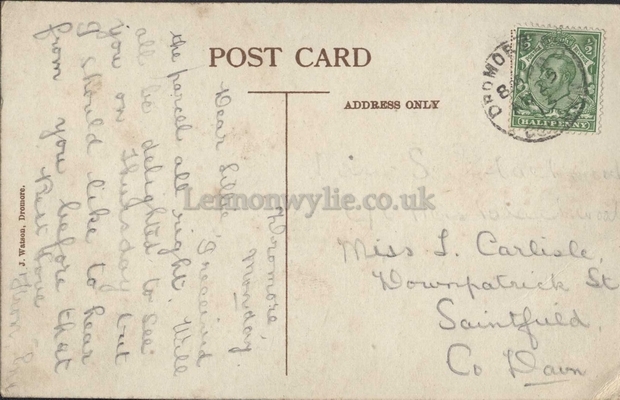 POST CARD
ADDRESS ONLY
HALFPENNY
DROMORE
Dromore,
Monday.
Dear Lillie, I received
the parcel all right. Will
all be delighted to see
you on Thursday but
I should like to hear
from you before that
Best love
Miss L. Carlisle,
Downpatrick St
Saintfield,
Co Down
J. Watson, Dromore.
Lennonwylie.co.uk